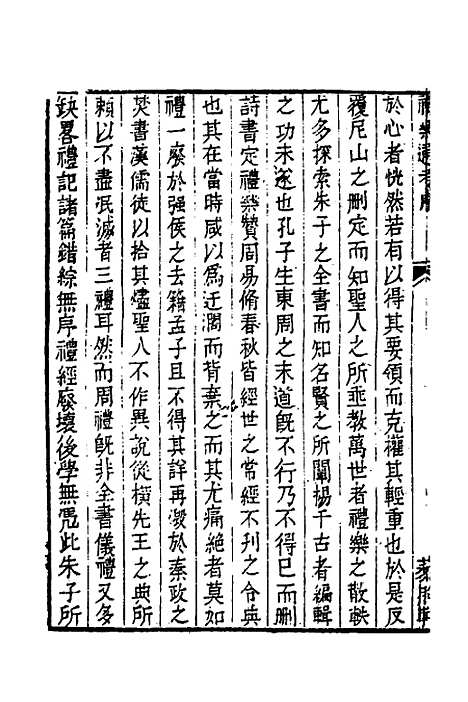 於心者恍然若有以得其要領而克權其輕重也於是反
覆尼山之刪定而知聖人之所垂教萬世者禮樂之散軼
尤多探索朱子之全書而知名賢之所闡楊千古者編輯
之功未遂也孔子生東周之末道旣不行乃不得已而刪
詩書定禮樂贊周易脩春秋皆經世之常經不刋之令典
也其在當時咸以爲迂濶而背棄之而其尤痛絕者莫如
禮一廢於强侯之去籍孟子且不得其詳再滅於秦政之
焚書漢儒徒以拾其燼聖人不作異說從橫先王之典所
賴以不盡泯滅者三禮耳然而周禮旣非全書儀禮又多
缺畧禮記諸篇錯綜無序禮經廢壞後學無凭此朱子所